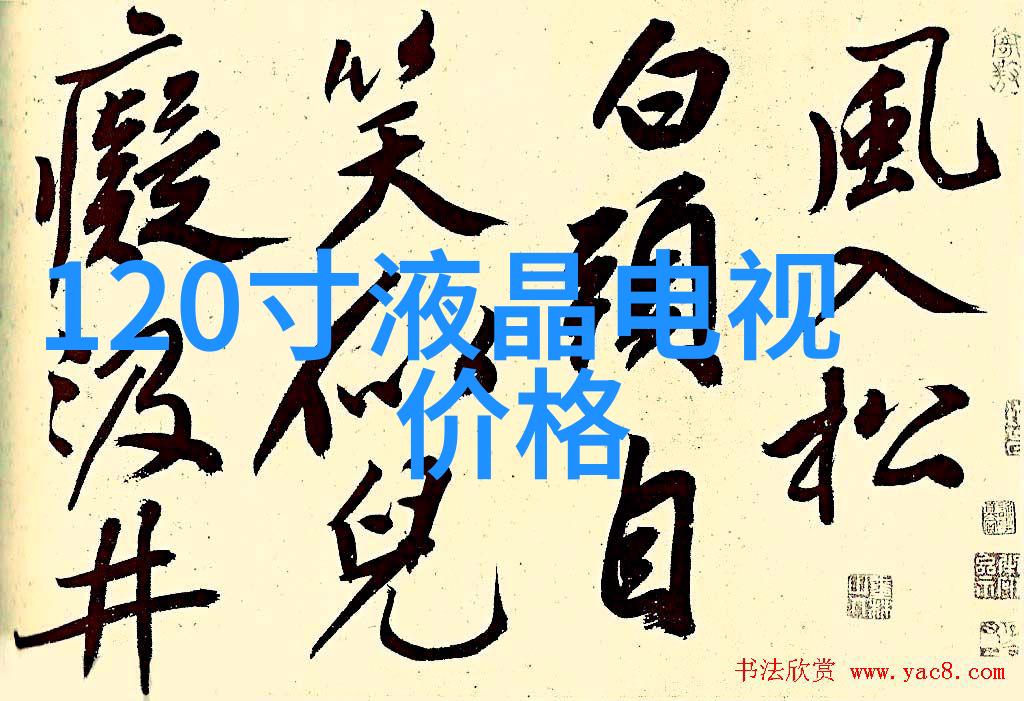 風入松
白頭自
笑似兒
癡汲井
120寸液晶电视
价格
书法欣赏 www.yac8.com